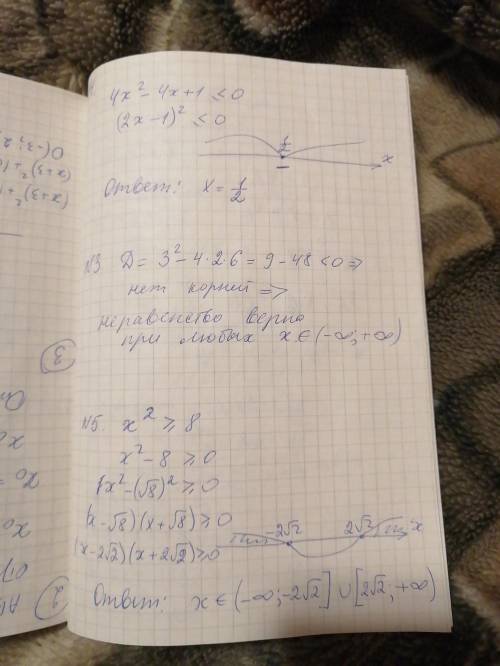 4x² - 4x + 1 ≤ 0
(2x - 1)² ≤ 0
1/2
x
Ответ: x = 1/2
N3 D = 3² - 4·2·6 = 9 - 48 < 0 =>
нет корней =>
неравенство верно
при любых x ∈ (-∞; +∞)
N5. x² ≥ 8
x² - 8 ≥ 0
x² - (√8)² ≥ 0
(x - √8)(x + √8) ≥ 0
(x - 2√2)(x + 2√2) ≥ 0
-2√2 2√2 x
Ответ: x ∈ (-∞; -2√2] ∪ [2√2; +∞)
3
x₀
x₀
2